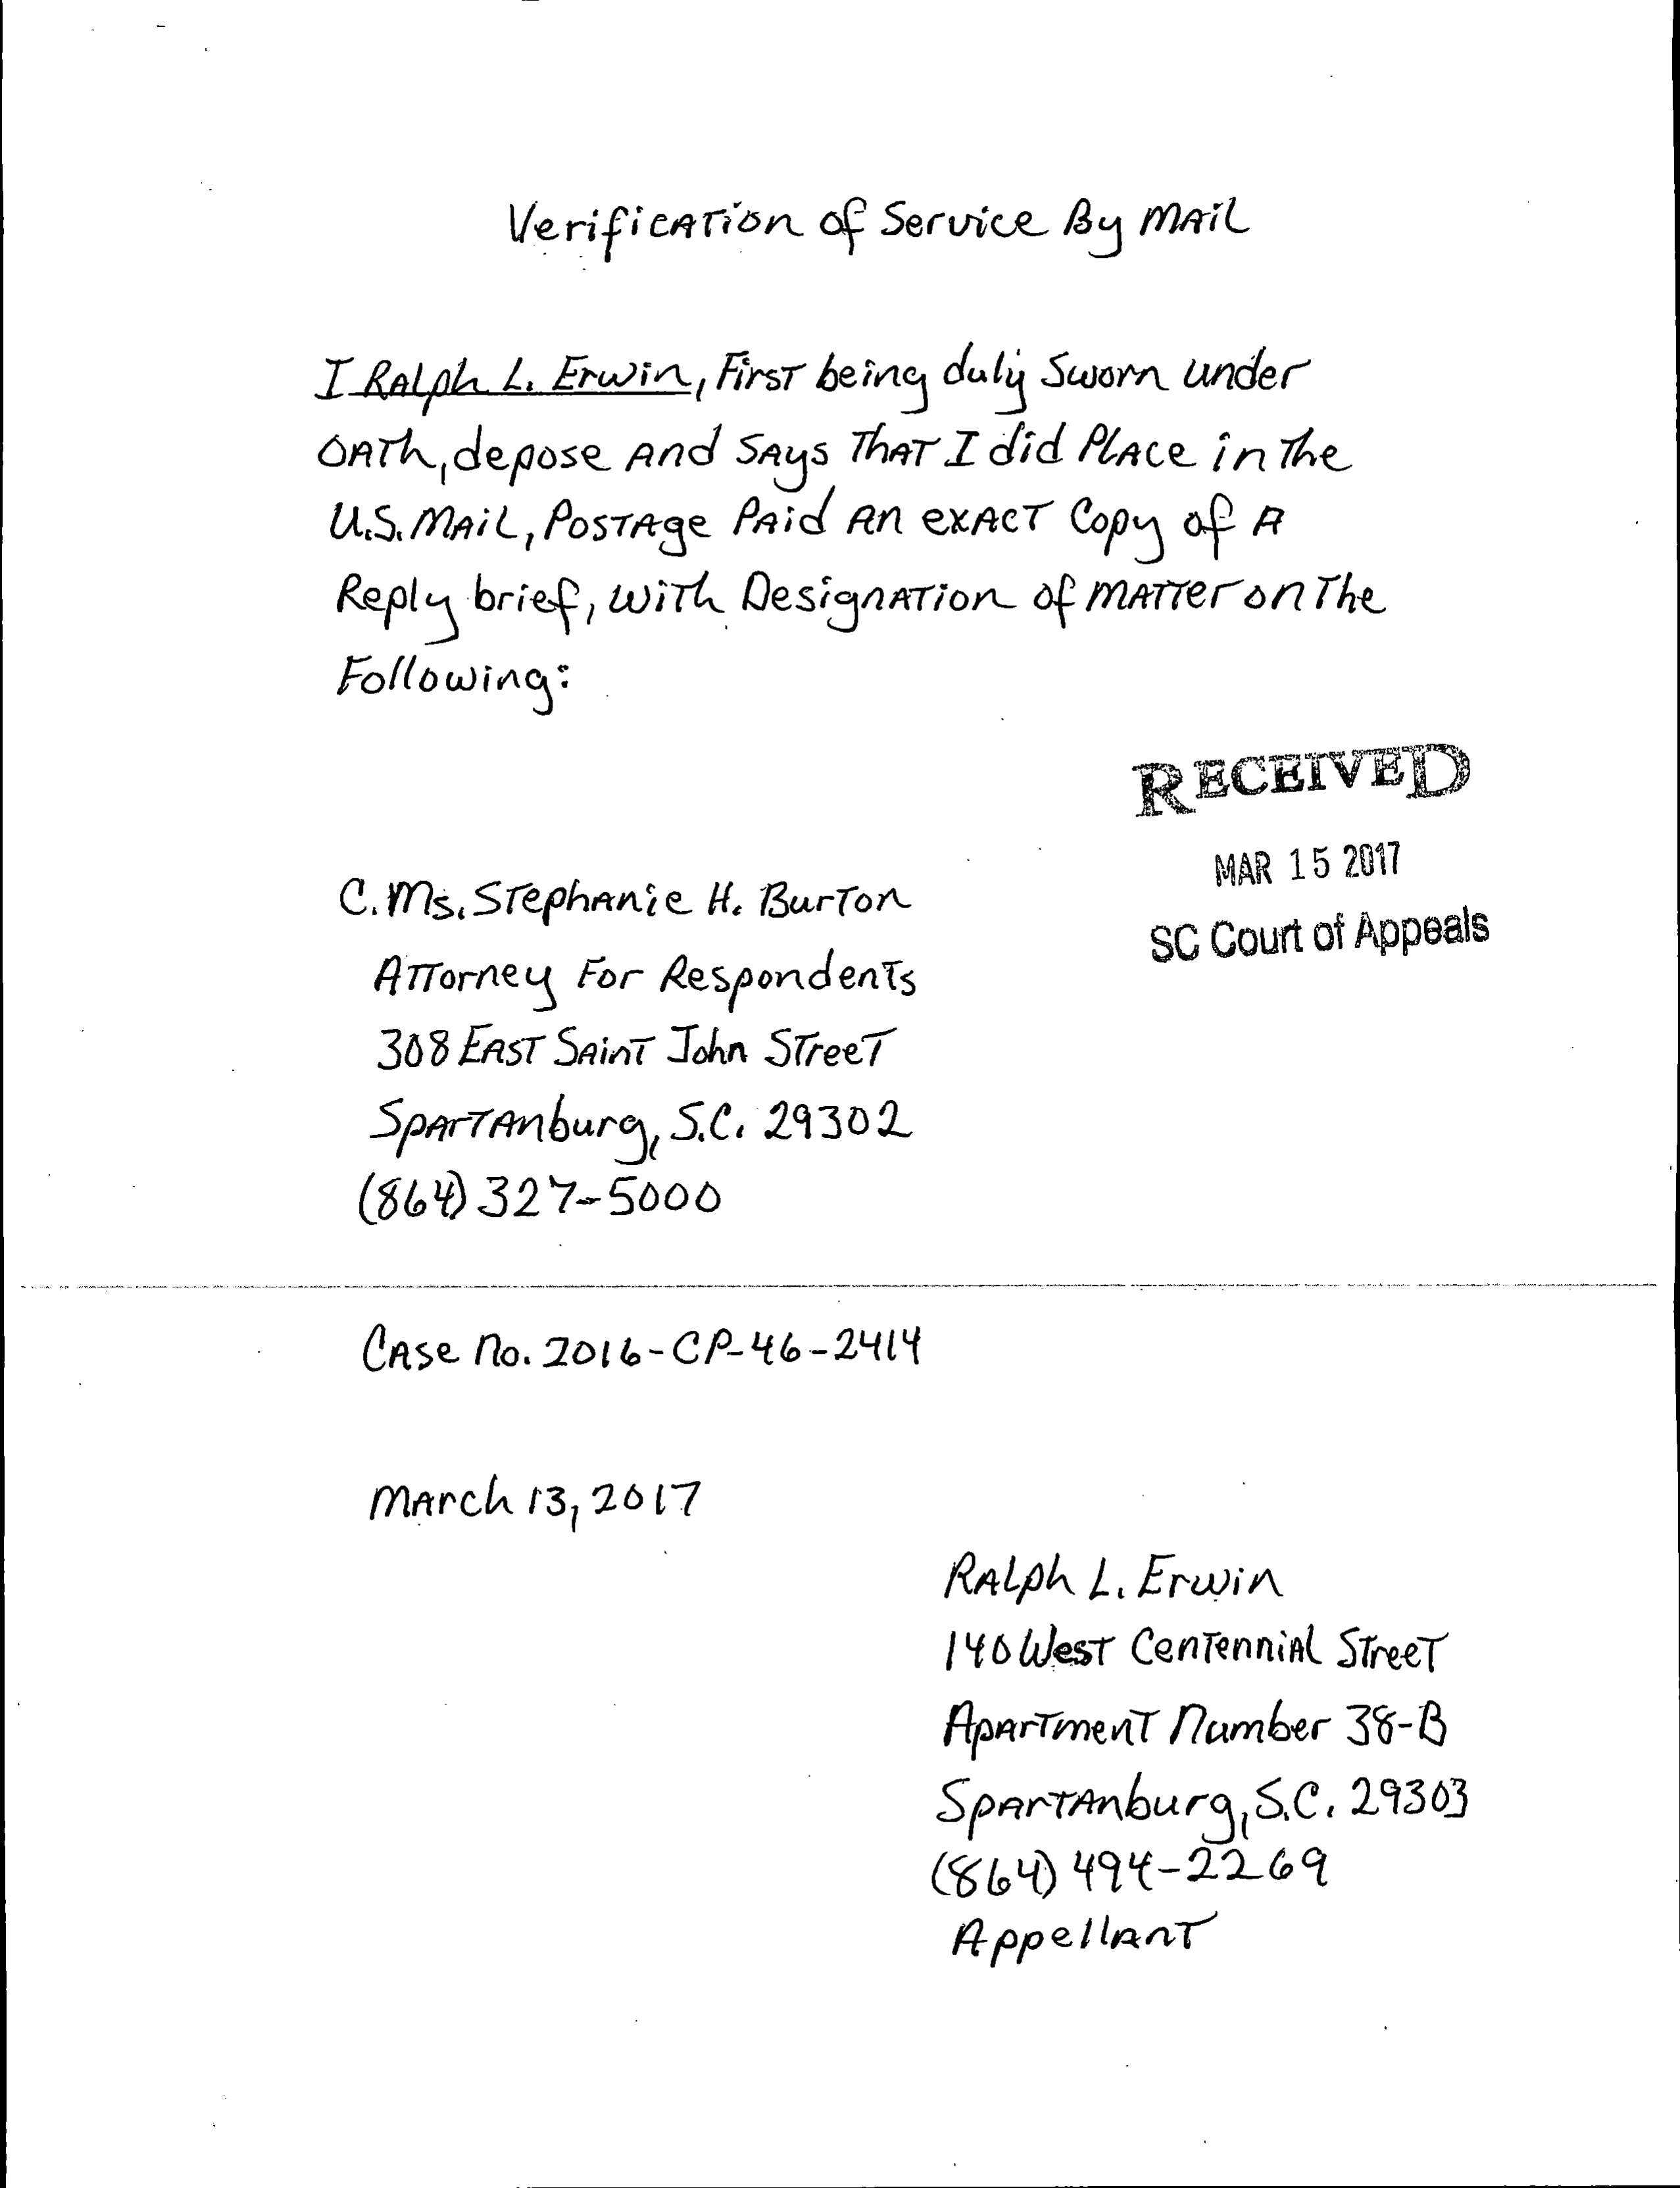 Verification of Service By Mail
I Ralph L. Erwin, First being duly Sworn under
Oath, depose And Says That I did Place in The
U.S. Mail, Postage Paid An exact Copy of A
Reply brief, With Designation of Matter on The
Following:
RECEIVED
MAR 15 2017
SC Court of Appeals
C. Ms. Stephanie H. Burton
Attorney For Respondents
308 East Saint John Street
Spartanburg, S.C. 29302
(864) 327-5000
Case No. 2016-CP-46-2414
March 13, 2017
Ralph L. Erwin
140 West Centennial Street
Apartment Number 38-B
Spartanburg, S.C. 29303
(864) 494-2269
Appellant